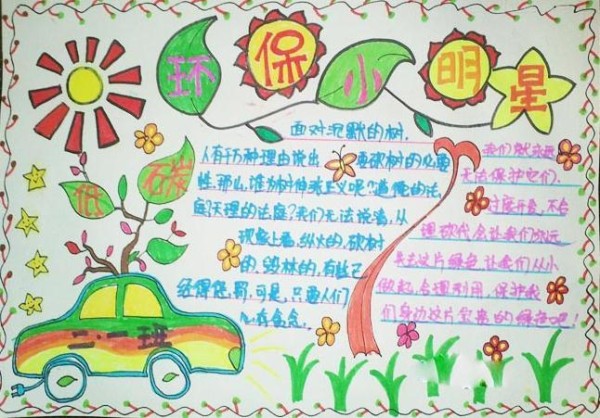 环保小明星
低
石炭
二.一班
面对沉默的树,
人有千万种理由说出
要砍树的必要
性,那么,谁为树伸张正义呢?道德的法
庭天理的法庭?我们无法说清,从
现象上看,纵火的,砍树
的,毁林的,有些已
经得惩罚,可是,只要人们
我们就永远
无法保护它们.
过度开发,不合
理砍伐会让我们永远
失去这片绿色.让我们从小
做起,合理利用,保护我
们身边这片宝贵的绿色吧!